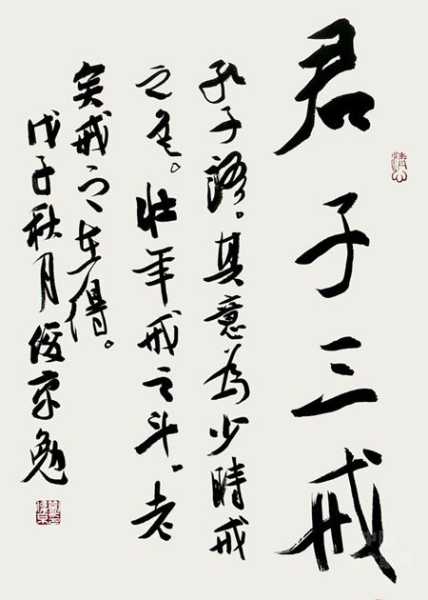 君子三戒
孔子语。其意为少时戒
之色。壮年戒之斗。老
矣戒之在得。
戊子秋月俊京勉